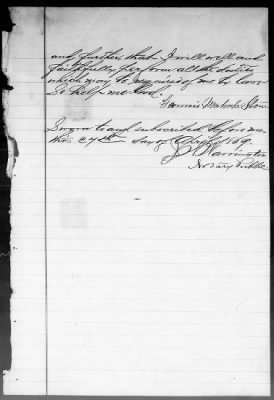 and further that I will well and
faithfully perform all the duties
which may be required of me by law
So help me God.
Fannie
Sworn to and subscribed before me
this 27th day of April 1869.
Harrington
Notary Public